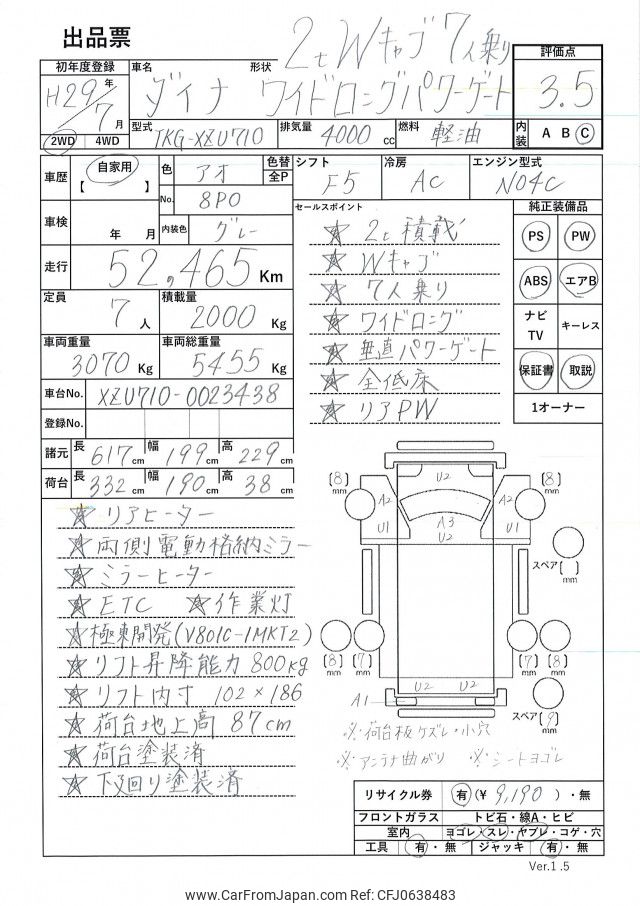 出品票
2tWキャブ7人乗り
初年度登録 車名 形状 評価点
H29年/7月 ダイナ ワイドロングパワーゲート 3.5
2WD 4WD 型式 TKG-XZU710 排気量 4000cc 燃料 軽油 内装 A B C
車歴 自家用 【 】 色 アオ 色替 全P シフト F5 冷房 AC エンジン型式 N04C
No. 8P0 セールスポイント 純正装備品
車検 年 月 内装色 グレー ☆ 2t積載 PS PW
走行 52,465Km ☆ Wキャブ ABS エアB
定員 7人 積載量 2000Kg ☆ 7人乗り ナビTV キーレス
☆ ワイドロング
車両重量 3070Kg 車両総重量 5455Kg ☆ 垂直パワーゲート 保証書 取説
車台No. XZU710-0023438 ☆ 全低床
登録No. ☆ リアPW 1オーナー
諸元 長 617cm 幅 199cm 高 229cm
荷台 長 332cm 幅 190cm 高 38cm
☆ リアヒーター
☆ 両側電動格納ミラー
☆ ミラーヒーター
☆ ETC ☆ 作業灯
☆ 極東開発(V801C-1MKT2)
☆ リフト昇降能力 800kg
☆ リフト内寸 102×186
☆ 荷台地上高 87cm
☆ 荷台塗装済
☆ 下回り塗装済
U2
(8)mm A2 A2 (8)mm
U1 A3 U1
U2
スペア( )mm
(8)mm (7)mm (7)mm (8)mm
U2 U2
A1
スペア(9)mm
※荷台板ケズレ・小穴
※アンテナ曲がり ※シートヨゴレ
リサイクル券 有(¥9,190)・無
フロントガラス トビ石・線A・ヒビ
室内 ヨゴレ・スレ・ヤブレ・コゲ・穴
工具 有・無 ジャッキ 有・無
Ver.1.5
www.CarFromJapan.com Ref: CFJ0638483